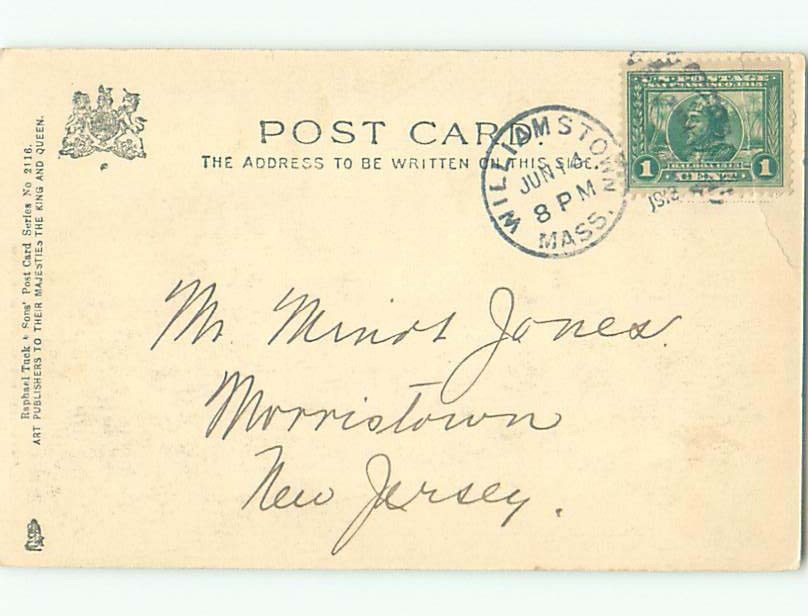 POST CARD.
THE ADDRESS TO BE WRITTEN ON THIS SIDE.
WILLIAMSTOWN
JUN 14
8 PM
MASS.
U.S. POSTAGE
SAN FRANCISCO 1915
BALBOA 1513
1 CENT 1
Raphael Tuck & Sons' Post Card Series No 2116.
ART PUBLISHERS TO THEIR MAJESTIES THE KING AND QUEEN.
Mr Minot Jones.
Morristown
New Jersey.